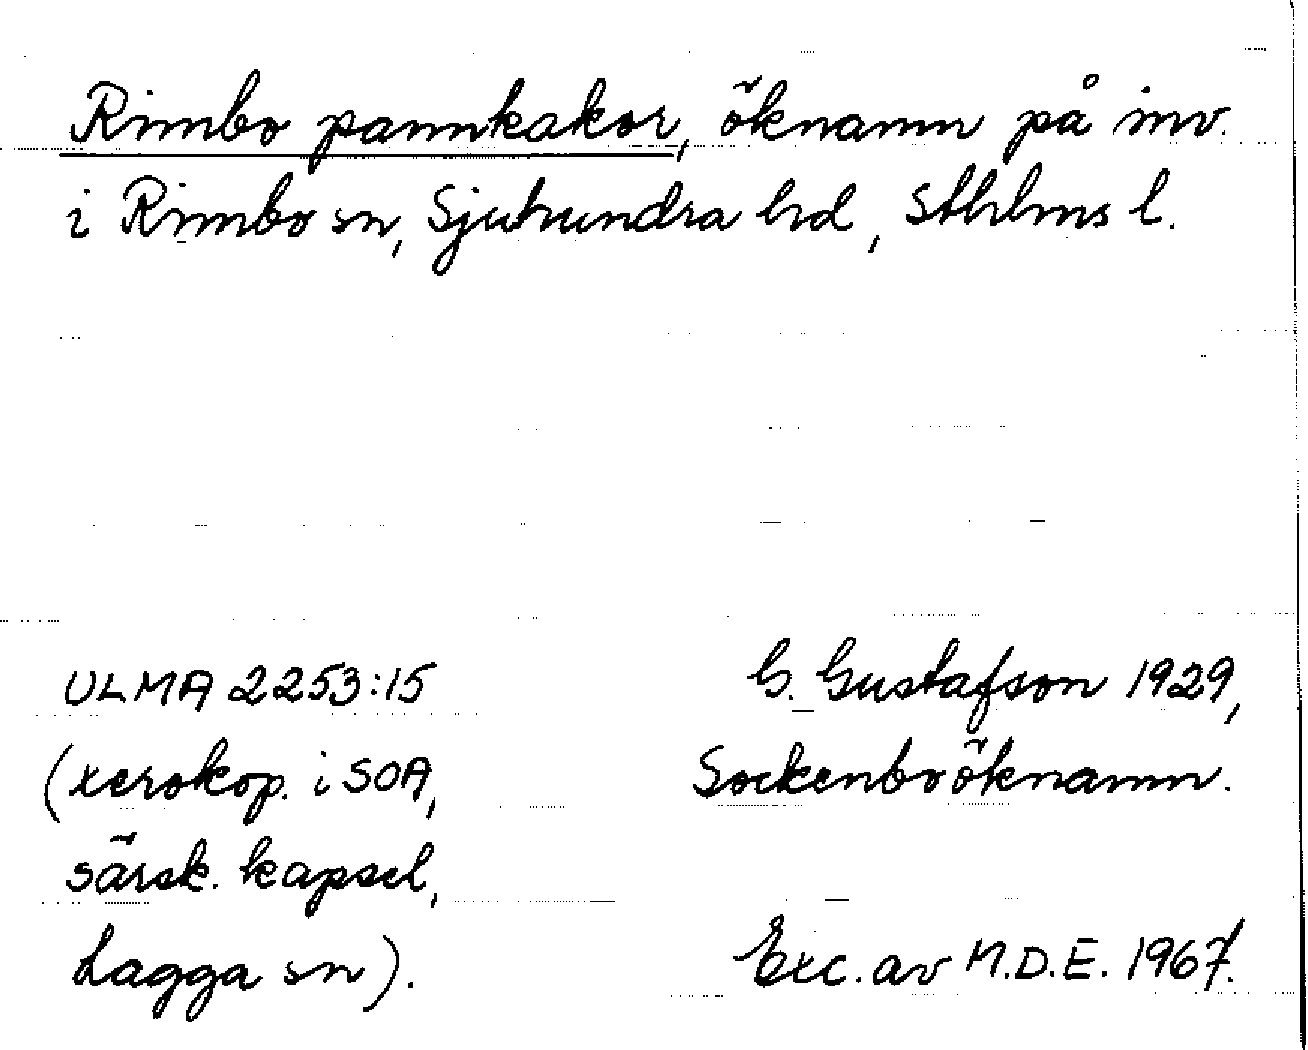 Rimbo pannkakor, öknamn på inv.
i Rimbo sn, Sjuhundra hd, Sthlms l.
ULMA 2253:15
(xerokop. i SOA,
särsk. kapsel,
Lagga sn).
G. Gustafson 1929,
Sockenboöknamn.
Exc. av M.D.E. 1967.